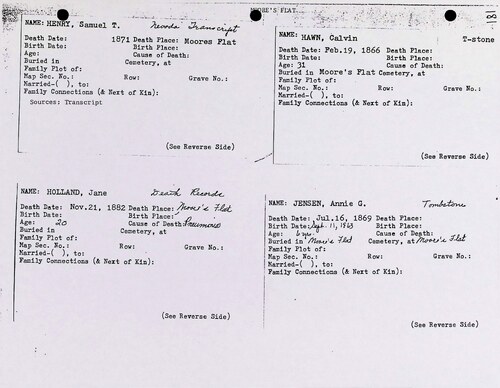 MOORE'S FLAT
NAME: HENRY, Samuel T. Nevada Transcript
Death Date: 1871 Death Place: Moores Flat
Birth Date: Birth Place:
Age: Cause of Death:
Buried in Cemetery, at
Family Plot of:
Map Sec. No.: Row: Grave No.:
Married-( ), to:
Family Connections (& Next of Kin):
Sources: Transcript
(See Reverse Side)
NAME: HAWN, Calvin T-stone
Death Date: Feb.19, 1866 Death Place:
Birth Date: Birth Place:
Age: 31 Cause of Death:
Buried in Moore's Flat Cemetery, at
Family Plot of:
Map Sec. No.: Row: Grave No.:
Married-( ), to:
Family Connections (& Next of Kin):
(See Reverse Side)
NAME: HOLLAND, Jane Death Records
Death Date: Nov.21, 1882 Death Place: Moore's Flat
Birth Date: Birth Place:
Age: 20 Cause of Death: Pneumonia
Buried in Cemetery, at
Family Plot of:
Map Sec. No.: Row: Grave No.:
Married-( ), to:
Family Connections (& Next of Kin):
(See Reverse Side)
NAME: JENSEN, Annie G. Tombstone
Death Date: Jul.16, 1869 Death Place:
Birth Date: Sept. 11, 1863 Birth Place:
Age: Cause of Death:
Buried in Moore's Flat Cemetery, at Moore's Flat
Family Plot of:
Map Sec. No.: Row: Grave No.:
Married-( ), to:
Family Connections (& Next of Kin):
(See Reverse Side)